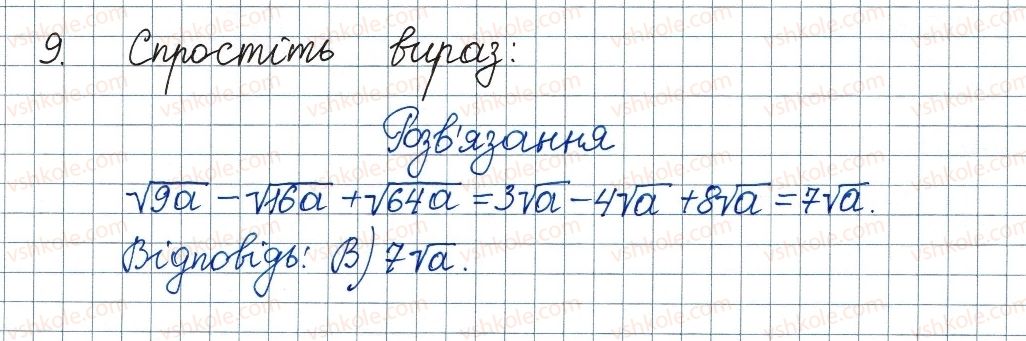 9. Спростіть вираз:
Розв'язання
√9a − √16a + √64a = 3√a − 4√a + 8√a = 7√a.
Відповідь: В) 7√a.